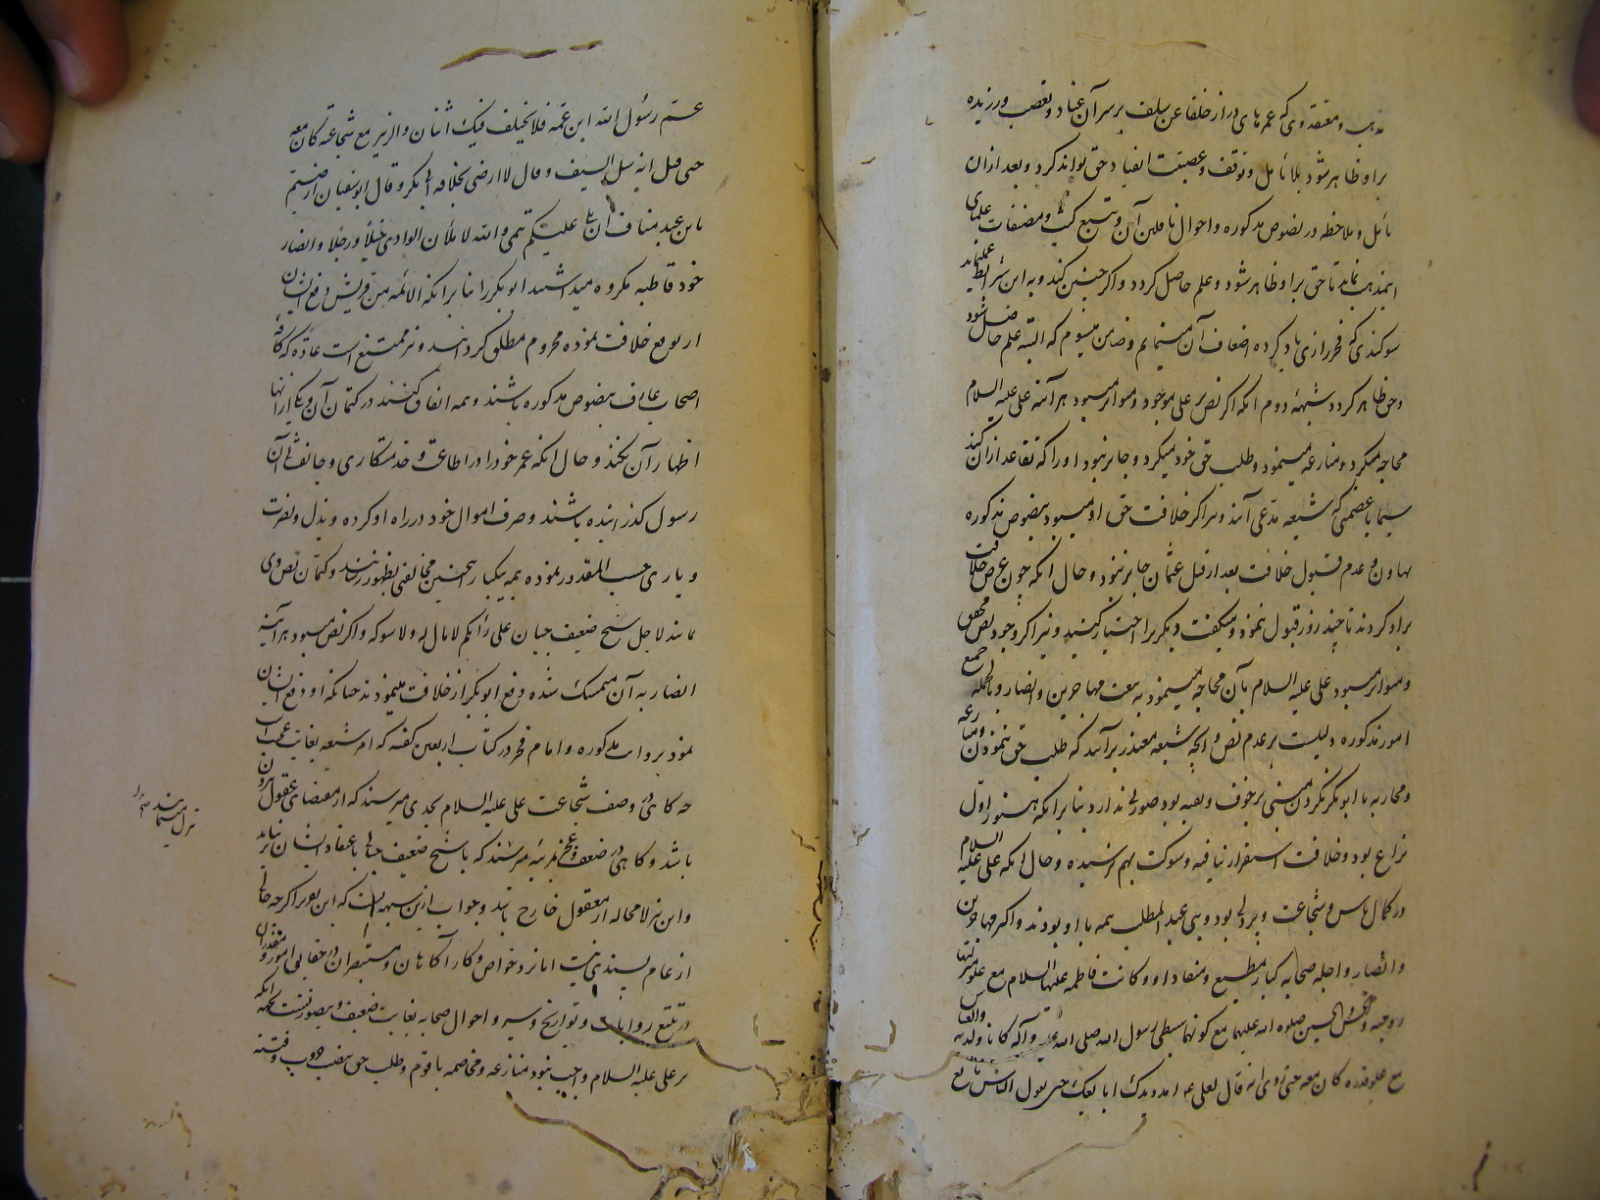 مذهب و معتقد وی که عمرهای دراز خلفا عن سلف بر سر آن عناد و تعصب ورزیده
بر او ظاهر شود بلا تأمل و توقف و عصبیت انقیاد حق تواند کرد و بعد از آن
تأمل و ملاحظه در نصوص مذکوره و احوال ناقلین آن و تتبع کتب و مصنفات علمای
نماید تا حق بر او ظاهر شود و علم حاصل گردد و اگر چنین کند و به این شرایط
سوکندی که فخر رازی یاد کرده اضعاف آن و ضامن میشوم که البته علم حاصل شود
و حق ظاهر کردد شبهۀ دوم آنکه اگر نص بر علی موجود و متواتر میبود هر آینه علی علیه السلام
محاجه میکرد و منازعه مینمود و طلب حق خود میکرد و جایز نبود او را که تقاعد از آن کند
سیما با عصمتی که شیعه مدعی آنند و نیز اگر خلافت حق او میبود بنصوص مذکوره
تهاون و عدم قبول خلافت بعد از قتل عثمان جایز نبود و حال آنکه چون عرض خلافت
بر او کردند تا چند روز قبول ننمود و میکفت دیگریرا اختیار کنید و نیز اگر وجود نص محقق
و متواتر میبود علی علیه السلام بآن محاجه مینمود به بیعت مهاجرین و انصار و بالجمله جمیع
امور مذکوره دلیلست بر عدم نص و آنچه شیعه معتذر برآنند که طلب حق ننمودن و منازعه
و محاربه با ابوبکر نکردن مبنی بر خوف و تقیه بود صورتی ندارد بنا بر آنکه هنوز اول
نزاع بود و خلافت استقرار نیافته و شوکت بهم نرسیده و حال آنکه علی علیه السلام
در کمال باس و شجاعت و پردلی بود و بنی عبد المطلب همه با او بودند و اکثر مهاجرین
و انصار و اجله صحابه کبار مطیع و منقاد او و کانت فاطمه علیها السلام مع علو منزلتها
زوجته و الحسن و الحسین صلوه الله علیهما مع کونهما سبطی رسول الله صلی الله علیه و آله کانا ولدیه و العباس
مع علو قدره کان معه حتی روی انه قال لعلی ع امدد یدک ابایعک حتی یقول الناس بایع
عم رسول الله ابن عمه فلا یختلف فیک اثنان و الزبیر مع شجاعته کان معه
حتی قیل انه سل السیف و قال لا ارضی بخلافه ابی بکر و قال ابو سفیان ارضیتم
یا بنی عبد مناف ان یلی علیکم تیمی و الله لاملأن الوادی خیلا و رجلا و انصار
خود قاطبه مکروه میداشتند ابوبکر را بنا بر آنکه الائمه من قریش دفع ایشان
از توقع خلافت نموده محروم مطلق کردانید و نیز ممتنع است عادة که کافه
اصحاب عارف بنصوص مذکوره باشند و همه اتفاق کنند در کتمان آن و یکی از آنها
اظهار آن نکند و حال آنکه عمر خود را در اطاعت و خدمتکاری و جانفشانی آن
رسول گذرانیده باشند و صرف اموال خود در راه او کرده و بذل و نصرت
و یاری حسب المقدور نموده همه بیکبار اینچنین مخالفتی بظهور رسانند و کتمان نص وی
نمایند لاجل شیخ ضعیف جبان علی رأیکم لا مال له و لا شوکه و اگر نص میبود هر آینه
انصار به آن متمسک شده دفع ابوبکر از خلافت مینمودند چنانکه او دفع ایشان
نمود بروایت مذکوره و امام فخر در کتاب اربعین گفته که امر شیعه بغایت عجب است
چه گاهی در وصف شجاعت علی علیه السلام بحدی میرسند که از مقتضای عقول بیرون
باشد و گاهی در ضعف و عجز بمرتبه میرسند که با شیخ ضعیف جبانی باعتقاد ایشان بر نیاید
و این نیز لا محاله از معقول خارج باشد و جواب ازین شبهه آنست که این تقریر اگر چه خالی
از عام پسندی نیست اما نزد خواص و کار آگاهان و مستبصران در حقایق امور و متتبعان
در تتبع روایات و تواریخ و سیر و احوال صحابه بغایت ضعیف و بیصورتست بجهه آنکه
بر علی علیه السلام واجب نبود منازعه و مخاصمه با قوم و طلب حق بنصب حروب و فتنه